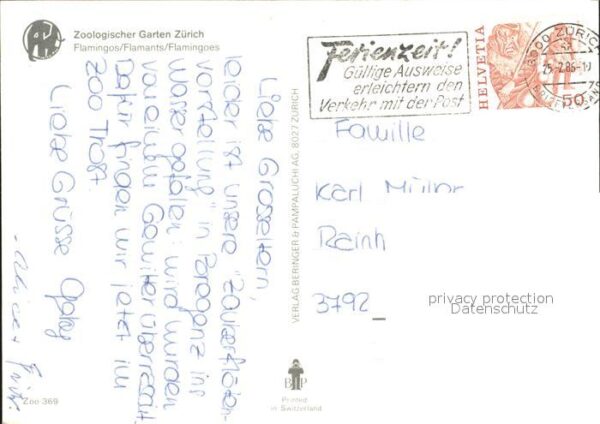 Zoologischer Garten Zürich
Flamingos/Flamants/Flamingoes
Liebe Grosseltern,
leider ist unsere "Zauberflöten-
vorstellung" in Bregenz ins
Wasser gefallen: wir wurden
von einem Gewitter überrascht.
Dafür finden wir jetzt im
Zoo Trost.
Liebe Grüsse
Zoo 369
VERLAG BERINGER & PAMPALUCHI AG, 8027 ZÜRICH
BP
Printed
in Switzerland
Ferienzeit!
Gültige Ausweise
erleichtern den
Verkehr mit der Post
HELVETIA
50
3000 ZÜRICH
Familie
Karl Müller
Rainh
3792
privacy protection
Datenschutz